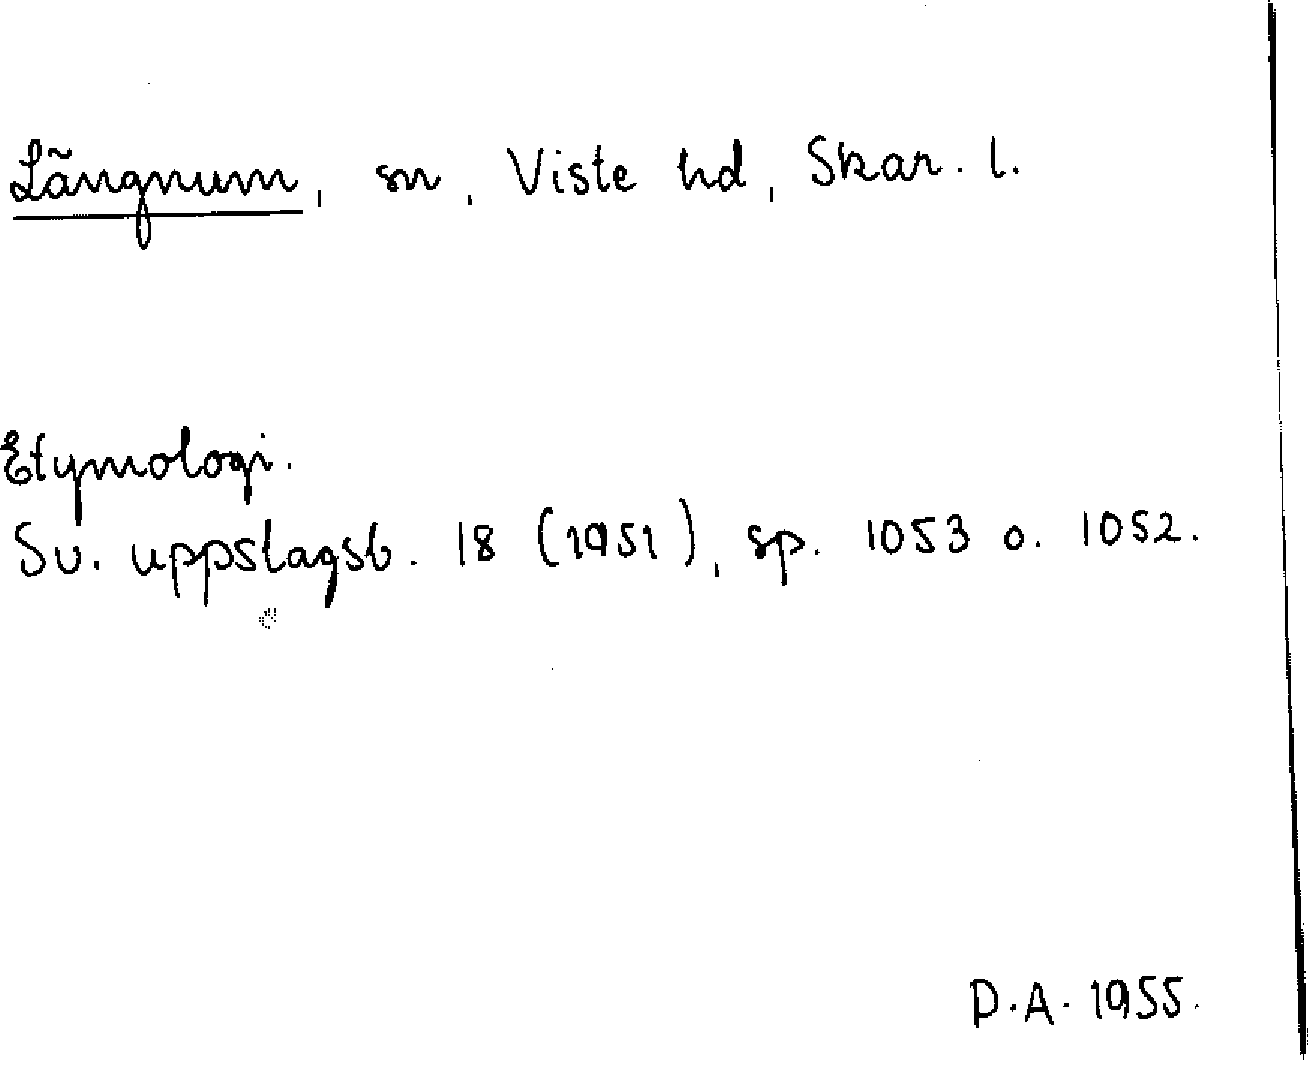 Längnum, sn, Viste hd, Skar. l.
Etymologi.
Sv. uppslagsb. 18 (1951), sp. 1053 o. 1052.
D.A. 1955.